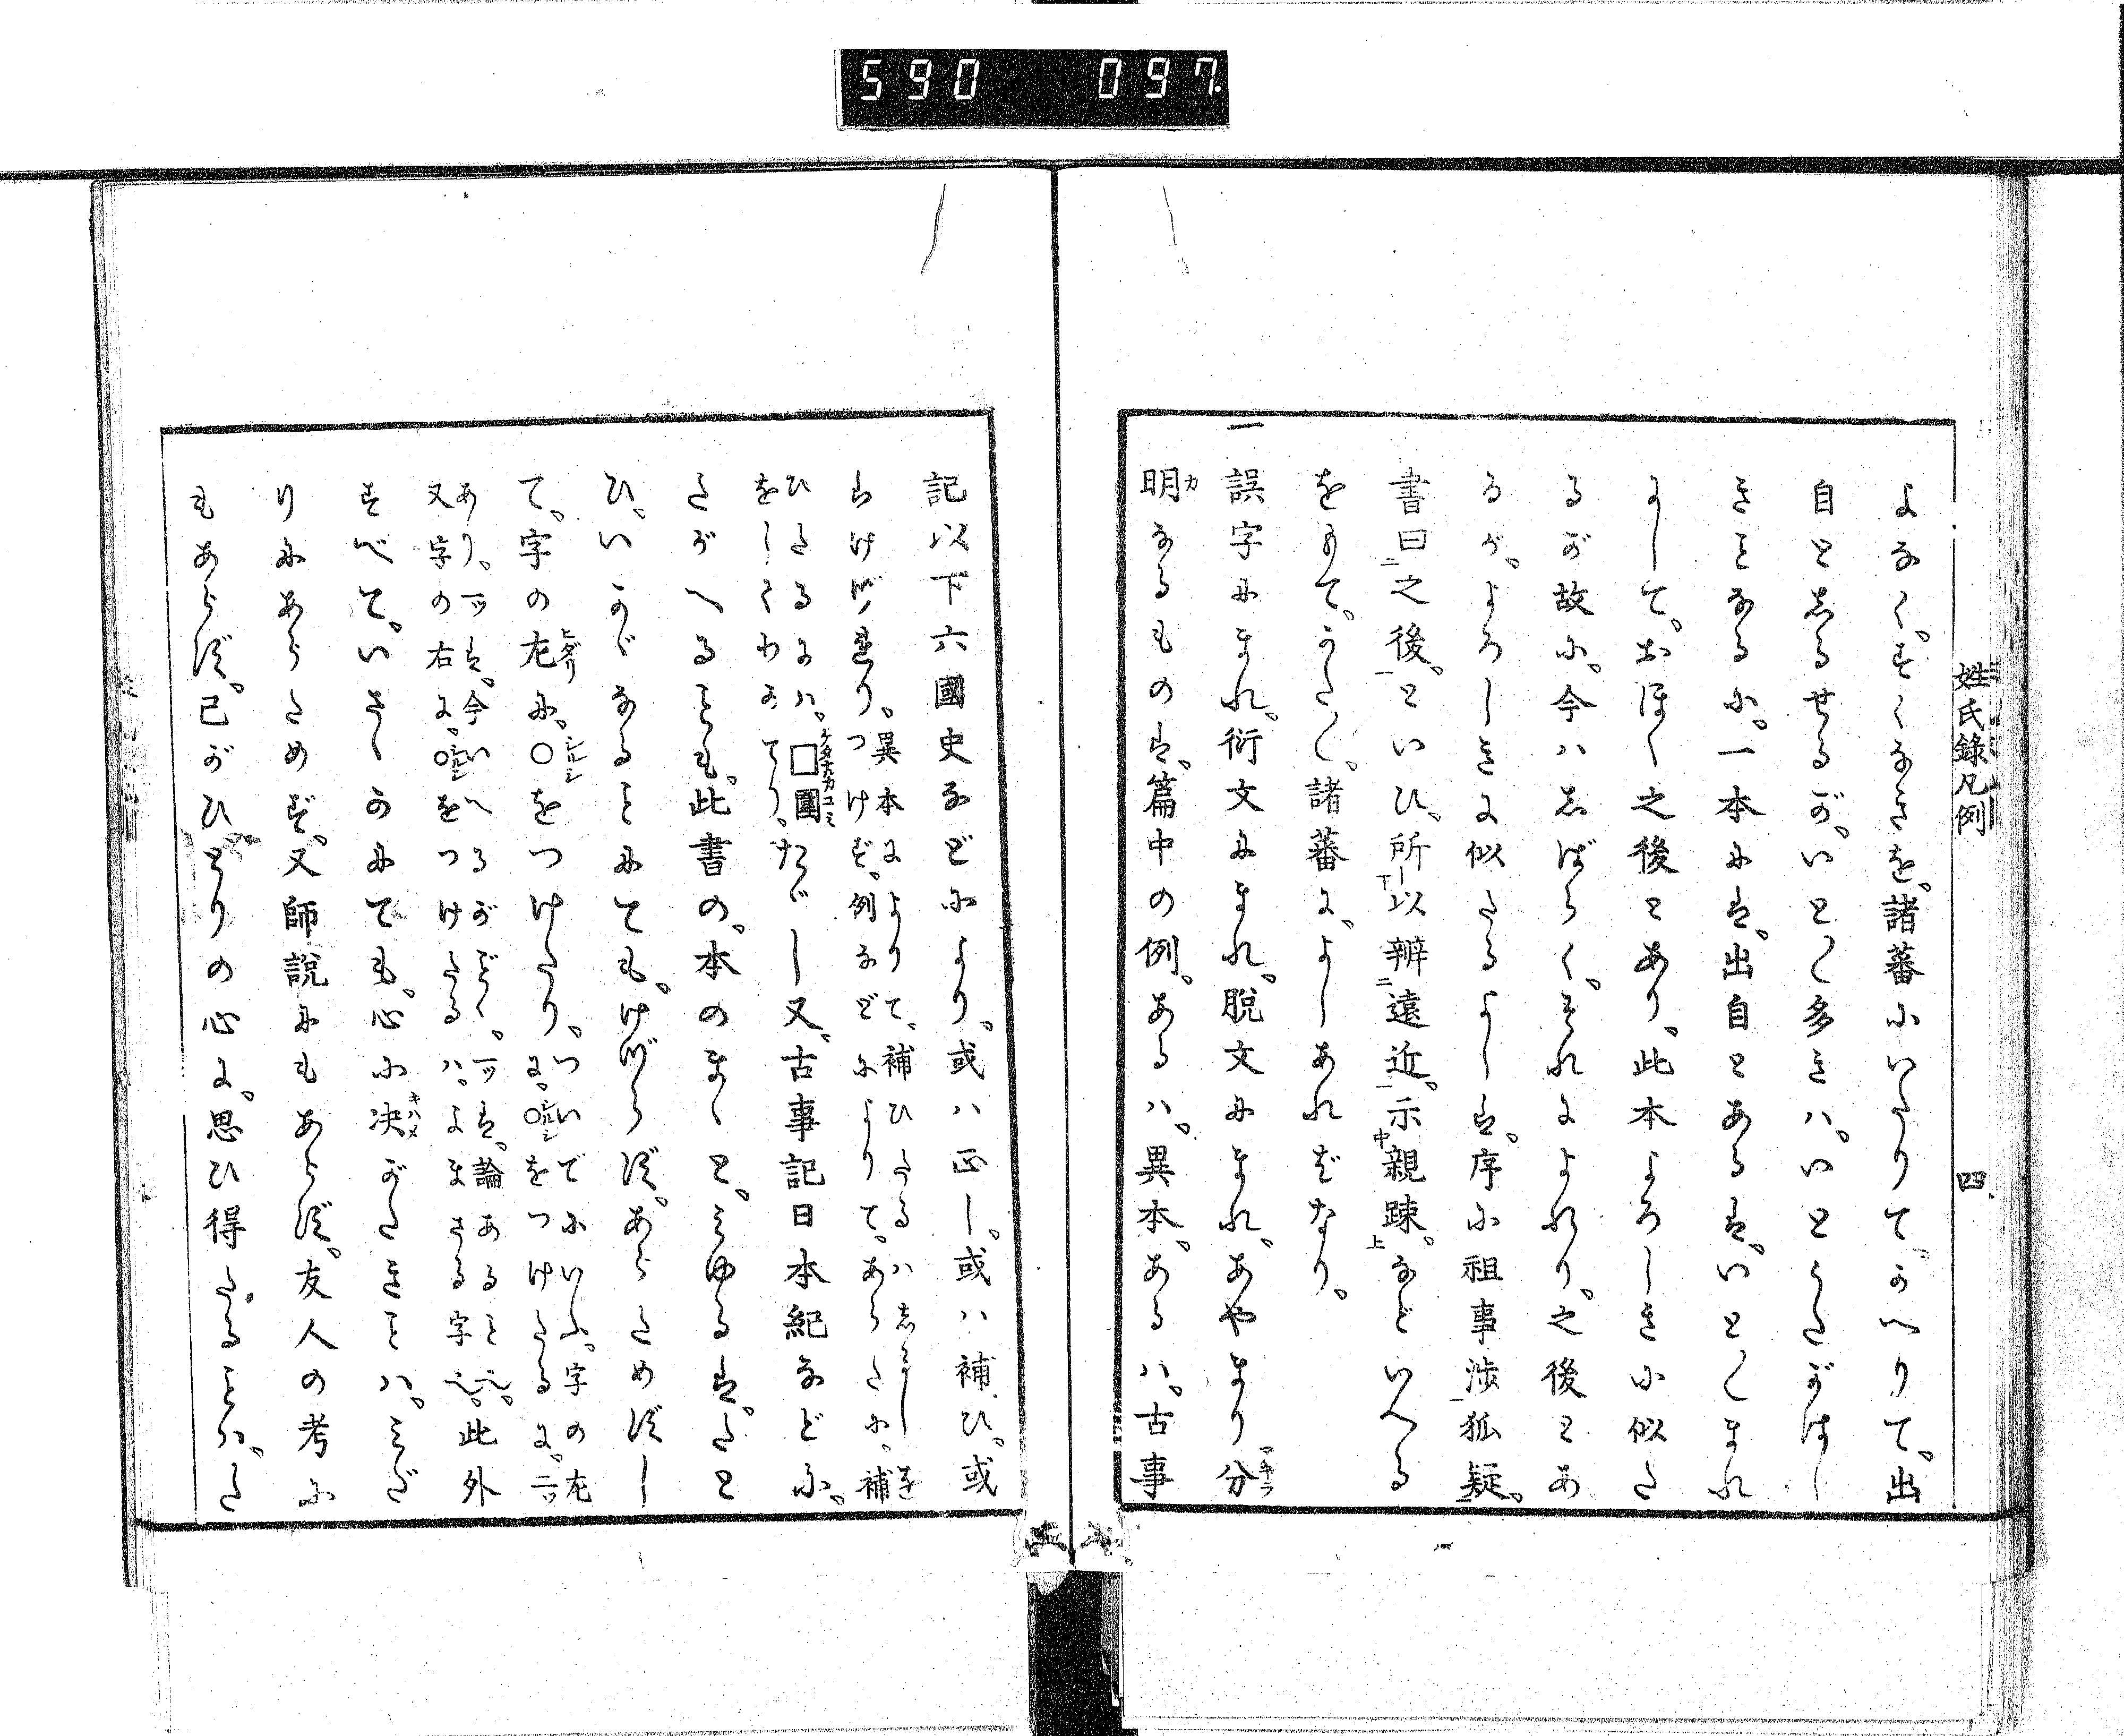 590 097.
姓氏錄凡例 四
よなく、すくなきを、諸蕃にいたりて、かへりて、出
自としるせるが、いと〳〵多きハ、いとうたがはし
きことなるに、一本には、出自とあるは、いと〳〵まれ
にして、おほく之後とあり、此本よろしきに似た
るが故に、今ハしばらく、それによれり、之後とあ
るが、よろしきに似たるよしは、序に祖事渉狐疑、
書曰之後、といひ、所以辨遠近、示親疎、などいへる
をもて、うたく、諸蕃に、よしあれバなり、
一 誤字にまれ、衍文にまれ、脱文にまれ、あやまり分
明なるもの は、篇中の例、あるハ、異本、あるハ、古事
記以下六國史などにより、或ハ正し、或ハ補ひ、或
らけづれり、異本によりて、補ひたるハしるしを
つけず、例などによりて、あらたに、補
ひたるにハ、□圍
をしてわかてり、たゞし又、古事記日本紀などに、
たがへることも、此書の、本のまゝと、みゆるは、たと
ひ、いかゞなることにても、けづらず、あらためずし
て、字の左に、○をつけたり、ついでにいふ、字の左
に、○をつけたるに、二ッ
あり、一ッは、今いへるがごとく、一ッは、論あること也、
又字の右に、○をつけたるハ、よまざる字也、此外
すべて、いさゝかにても、心に决がたきことハ、みだ
りにあらためず、又師説にもあらず、友人の考に
もあらず、己がひとりの心に、思ひ得たることハ、た